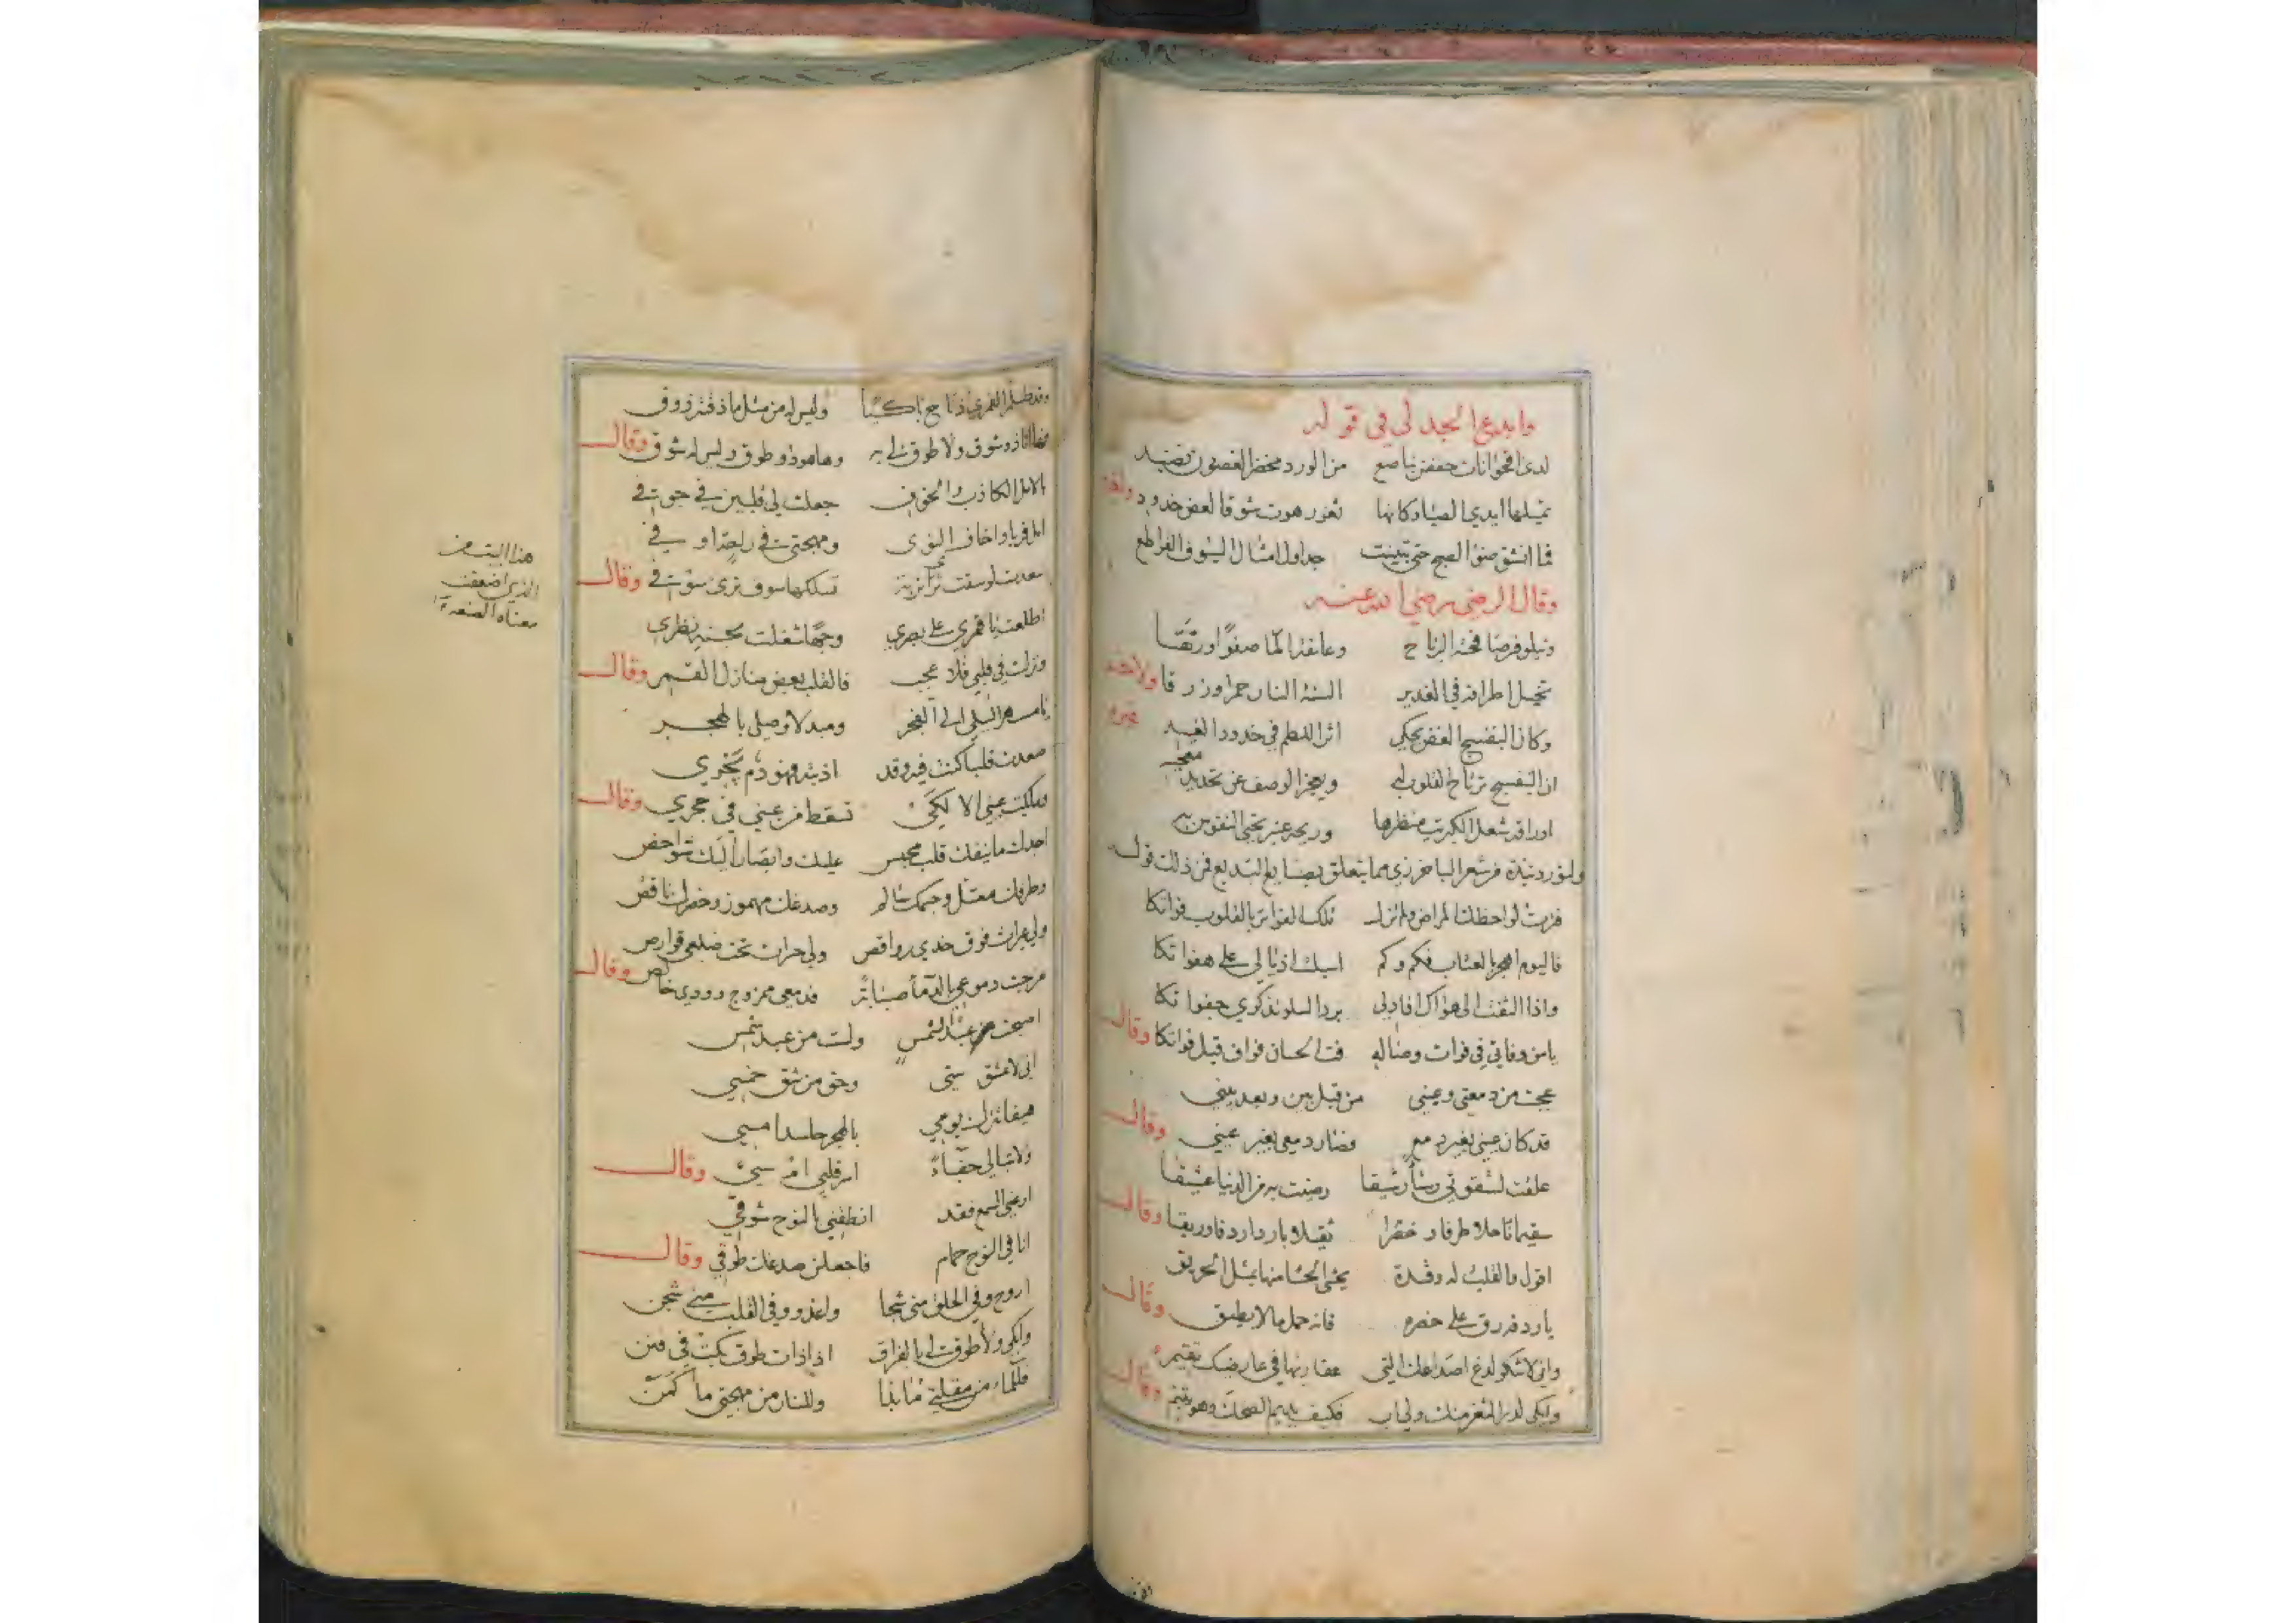 وابدع المجد لي في قوله
لدى اقحوانات حففن بناصع من الورد مخضر الغصون نضيد
تميلها ايدي الصبا وكانها ثغور هوت شوقا لعض خدود
فما انشق ضوء الصبح حتى تبينت جداول امثال السيوف القواطع
وقال الرضي رضي الله عنه
ونيلوفر صافحته الرياح وعانقه الما صفوا ورنقا
تخيل اطرافه في الغدير السنة النار حمرا وزرقا ولاخر
وكان البنفسج الغض يحكي اثر اللطم في خدود الغيد
ان البنفسج ترتاح القلوب له ويعجز الوصف عن تحديد معجبه
اوراقه شعل الكبريت منظرها وريحه عنبر تحيي النفوس به
ولنورد نبذة من شعر الباخرزي مما يتعلق بصنايع البديع فمن ذلك قوله
فزت لواحظك المراض ولم تزل تلك الفواتر بالقلوب فواتكا
فاليوم اهجر بالعتاب فكم وكم اسبلت اذيالي على هفواتكا
واذا التفت الى هواك افادني برد السلو تذكري جفواتكا
يا من وفاتي في فوات وصاله فت الحسان فواف قبل فواتكا وقال
عجبت من دمعتي وعيني من قبل بين وبعد بين
قد كان عيني بغير دمع فصار دمعي بغير عين وقال
علقت لشقوتي رشأ رشيقا رضيت به من الدنيا عشيقا
سقيما ناحلا طرفا وخصرا ثقيلا باردا ردفا وريقا وقال
اقول والقلب له وقدة يحشى الحشا منها بمثل الحريق
يا ردفه رق على خصره فانه حمل ما لا يطيق وقال
واني لاشكو لدغ اصداغك التي عقاربها في عارضيك تقيم
وابكي لدر الثغر منك ولي اب فكيف يديم الضحك وهو يتيم وقال
وليس له من مثل ما ذقته ذوق
فها انا ذو شوق ولا طوق لي به وها هو ذو طوق وليس له شوق وقال
بالامل الكاذب والخوف جعلت لي قلبين في جوفي
امل قربا واخاف النوى ومهجتي في راحة او في
تسلكها سوف ترى سوفي وقال
اطلعت يا قمري على بصري وجها شغلت بحسنه نظري
ونزلت في قلبي فلا عجب فالقلب بعض منازل القمر وقال
يا مسهر الليلي الى الفجر ومبدلا وصلي بالهجر
صعدت قلبا كنت فيه وقد اذبته فهو دم يجري
وما بكت عيني الا لكي تسقط من عيني في حجري وقال
احبك ما ينفك قلب محبس عليك وابصار اليك شواخص
وطرفك معتل وجسمك سالم وصدغك مهموز وخصرك ناقص
ولي عبرات فوق خدي رواقص ولي حرات تحت ضلعي قوارص
مزجت دموعي بالدما صبابة فدمعي ممزوج وودي خالص وقال
اصبحت عبد الشمس ولست من عبد شمس
اني لاعشق ستي وحق من شق خمسي
بالهجر حاسدا امسي
ولا تبالي جفاء وقال
ارعني السمع فقد انطقني بالنوح شوقي
انا في النوح حمام فاجعلن صدغك طوقي وقال
اروح وفي الحلق مني شجا واغدو وفي القلب مني شجن
وابكي ولا طوق لي بالفراق اذا ذات طوق بكت في فنن
فللماء من مقلتي ما بدا وللنار من مهجتي ما كمن
هذا البيت من
الذي اضعفت
معناه الصنعة